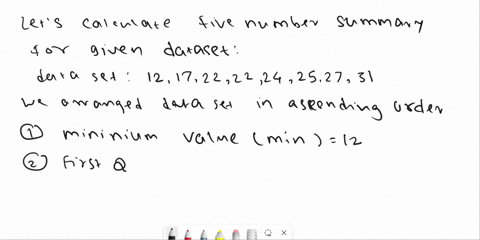 Let's calculate five number summary
for given dataset:
data set: 12,17,22,22,24,25.27,31
we arranged data set in ascending order
① mininium value (min) = 12
② First Q